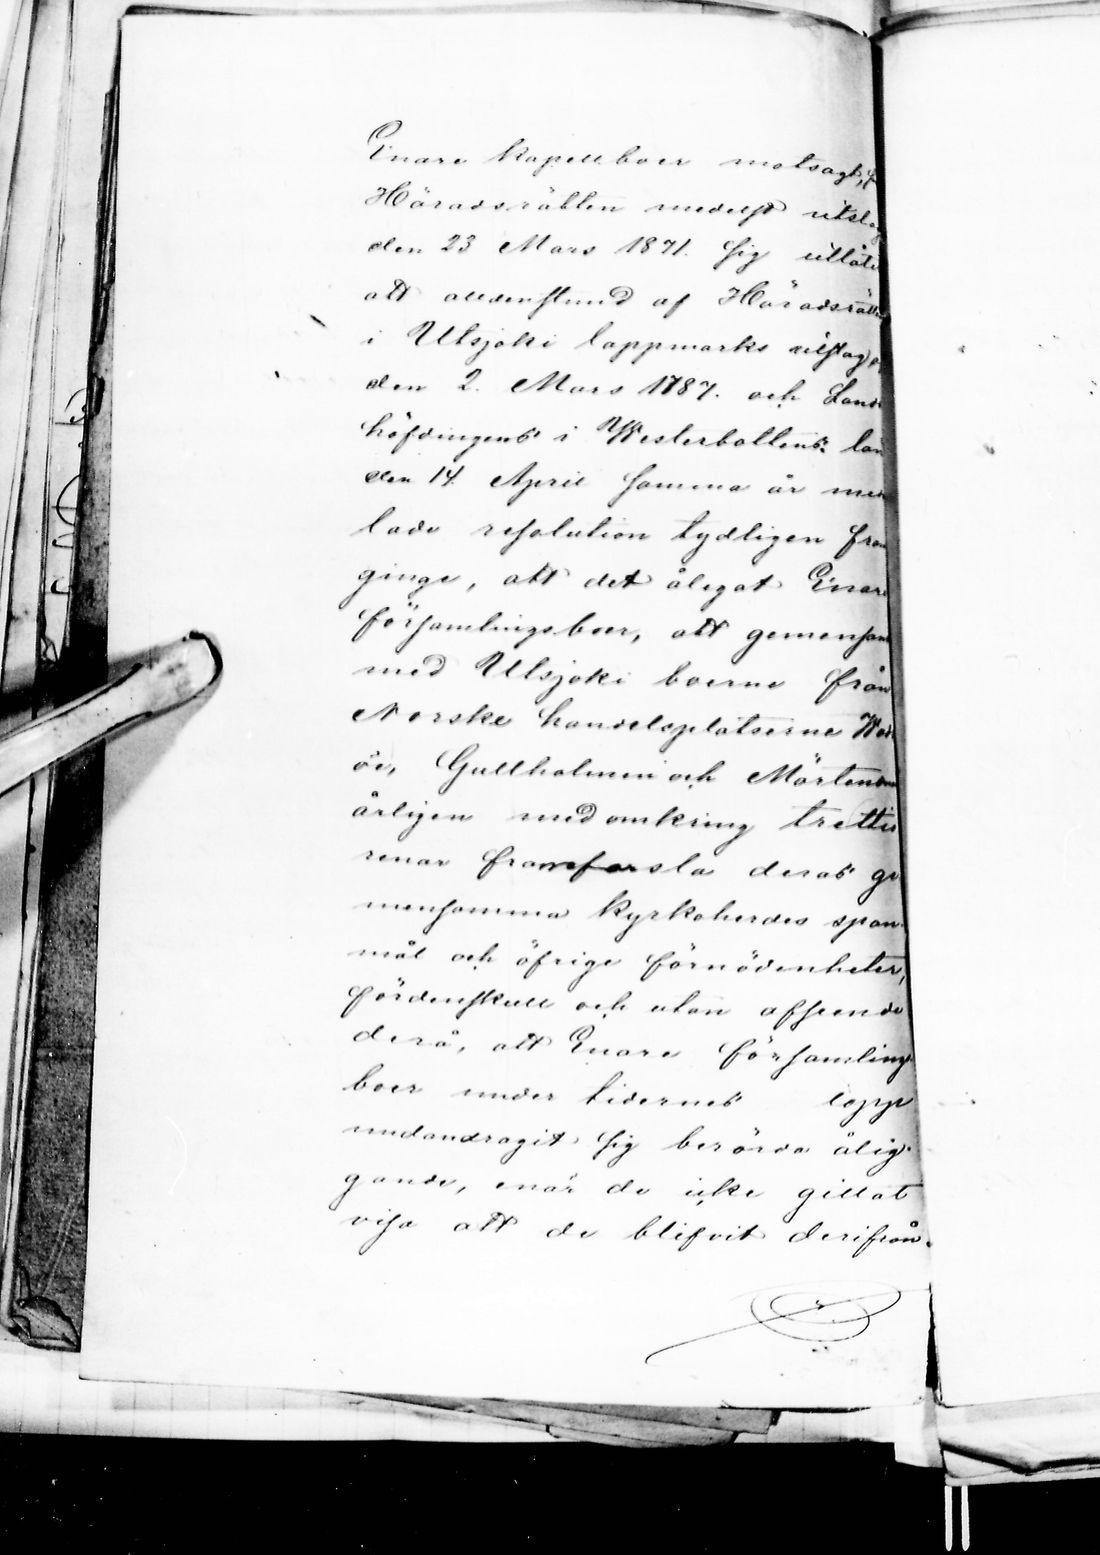 Enare kapellboer motsagt,
Häradsrätten medelst utslag
den 23 Mars 1871. sig utlåti
att alldenstund af Häradsrätte
i Utsjoki lappmarks utslag
den 2. Mars 1787. och Lands
höfdingens i Westerbottens län
den 14. April samma år med
lade resolution tydligen fram
ginge, att det ålegat Enare
församlingsboer, att gemensam
med Utsjoki boerne från
Norske handelsplatserne Wad
öe, Gullholmen och Mortens
årligen med omkring trettio
renar framforsla deras ge
mensamma kyrkoherdes span
mål och öfrige förnödenheter,
fördenskull och utan afseende
derå, att Enare församlings
boer under tidernes lopp
undandragit sig berörda ålig
gande, enär de icke gittat
visa att de blifvit derifrån